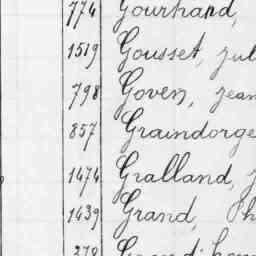 774 Gourhand,
1519 Gousset, jul
798 Goven, jean
857 Graindorge
1474 Gralland, j
1439 Grand, Ph
278